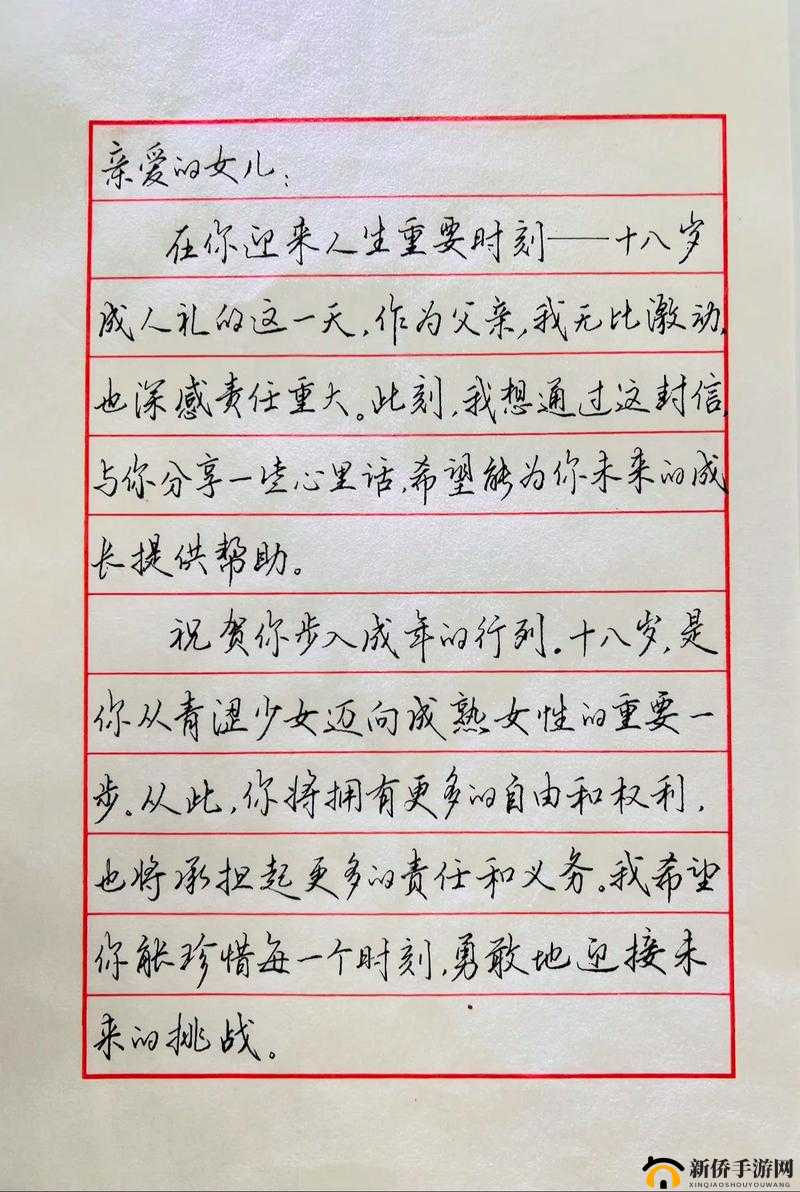 亲爱的女儿：
在你迎来人生重要时刻——十八岁
成人礼的这一天，作为父亲，我无比激动，
也深感责任重大。此刻，我想通过这封信，
与你分享一些心里话，希望能为你未来的成
长提供帮助。
祝贺你步入成年的行列。十八岁，是
你从青涩少女迈向成熟女性的重要一
步。从此，你将拥有更多的自由和权利，
也将承担起更多的责任和义务。我希望
你能珍惜每一个时刻，勇敢地迎接未
来的挑战。
新侨手游网
XINQIAOSHOUYOUWANG